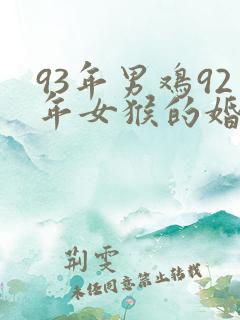 93年男鸡92
年女猴的婚
荆雯
未经同意禁止转载